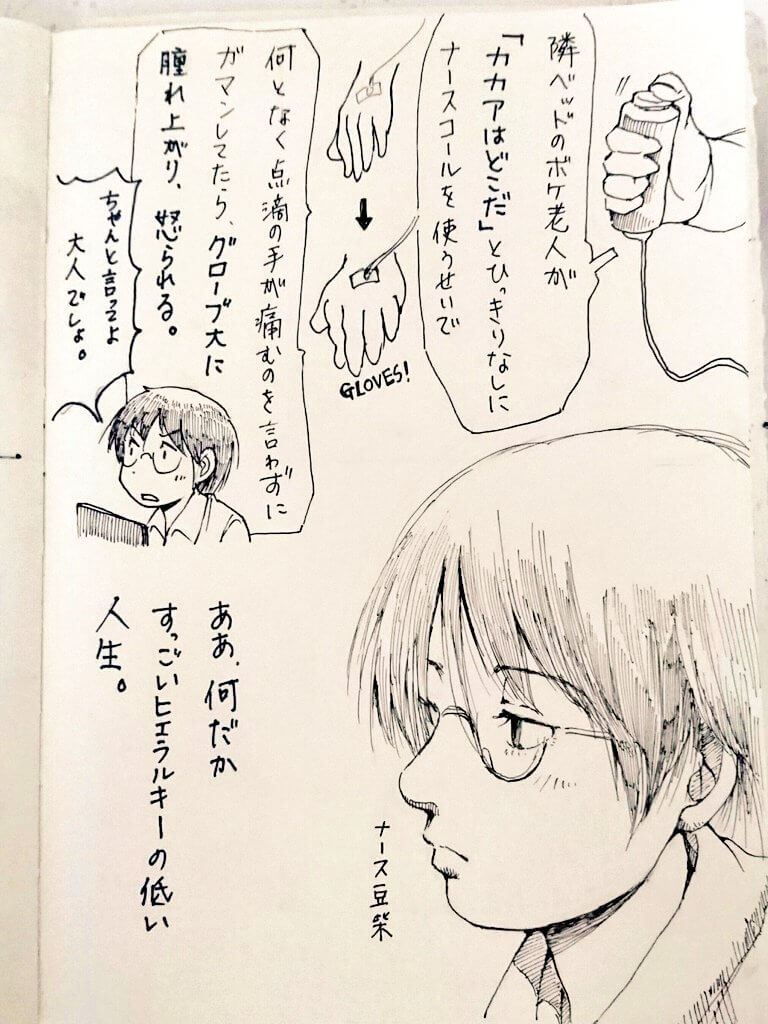 隣ベッドのボケ老人が
「カカアはどこだ」とひっきりなしに
ナースコールを使うせいで
GLOVES!
何となく点滴の手が痛むのを言わずに
ガマンしてたら、グローブ大に
腫れ上がり、怒られる。
ちゃんと言ってよ
大人でしょ。
ナース豆柴
ああ、何だか
すっごいヒエラルキーの低い
人生。